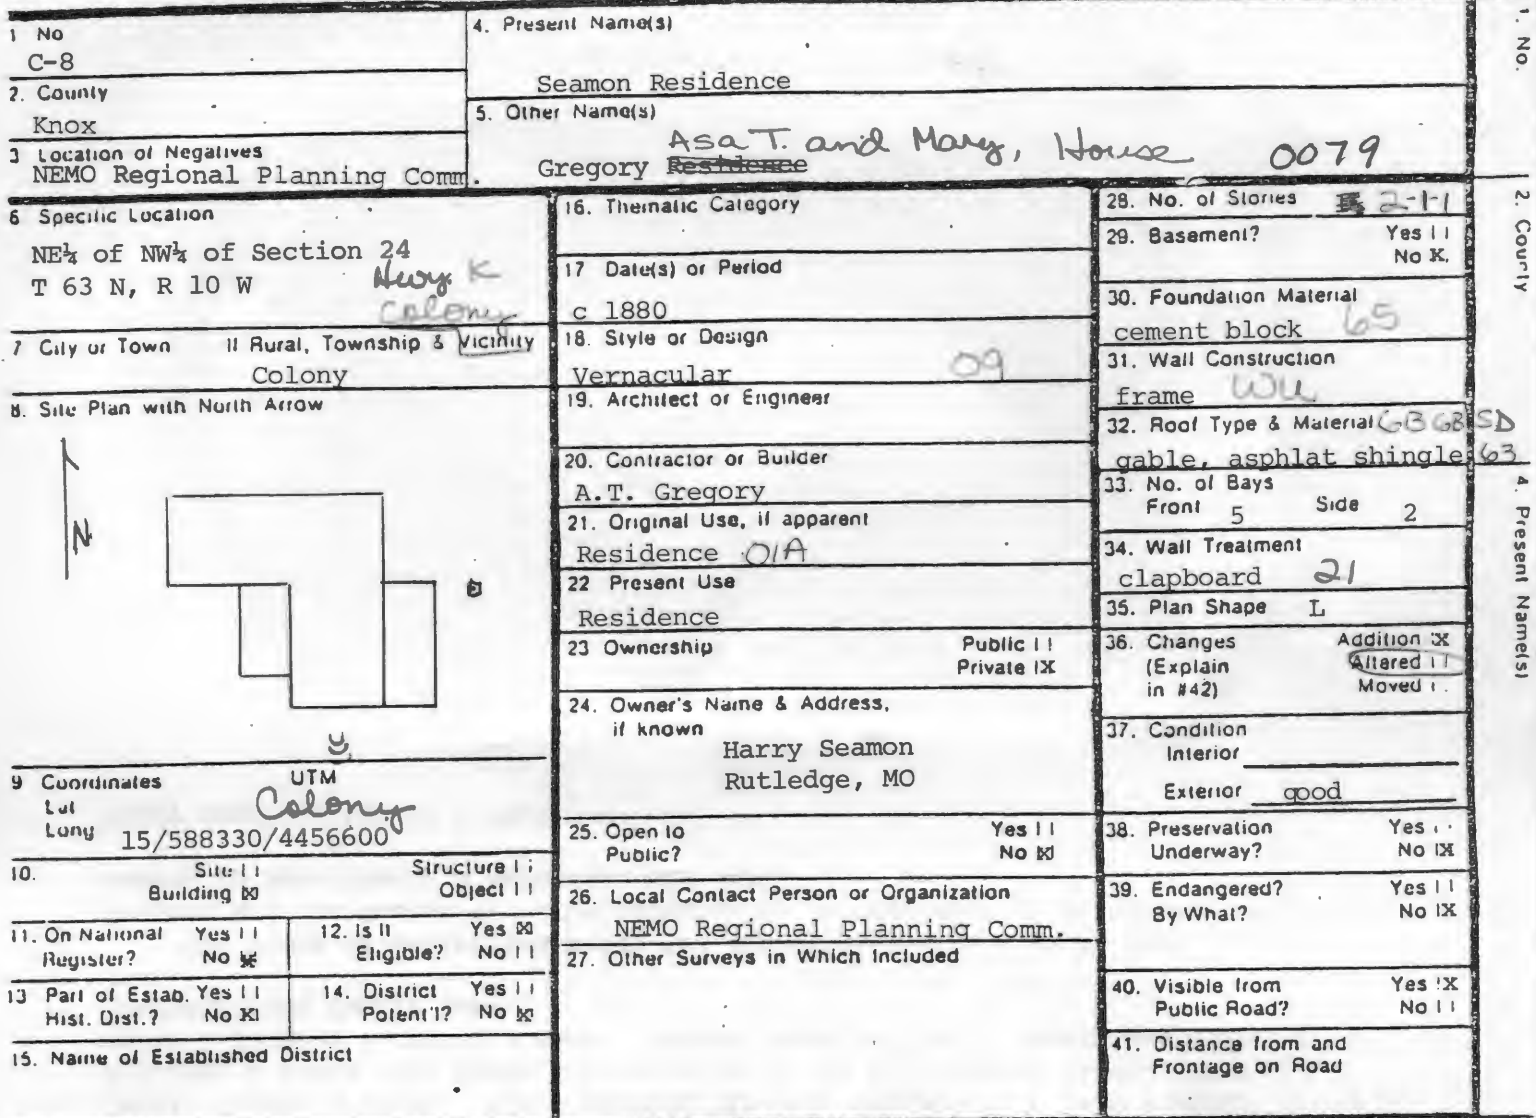 1 No
C-8
2. County
Knox
3 Location of Negatives
NEMO Regional Planning Comm.
4. Present Name(s)
Seamon Residence
5. Other Name(s)
Asa T. and Mary, House 0079
Gregory Residence
6 Specific Location
NE¼ of NW¼ of Section 24
T 63 N, R 10 W
Hwy. K
Colony
7 City or Town If Rural, Township & Vicinity
Colony
8. Site Plan with North Arrow
N
9 Coordinates UTM
Lat
Colony
Long 15/588330/4456600
10. Site Structure
Building X Object
11. On National Register? Yes No X
12. Is It Eligible? Yes X No
13 Part of Estab. Hist. Dist.? Yes No X
14. District Potent'l? Yes No X
15. Name of Established District
16. Thematic Category
17 Date(s) or Period
c 1880
18. Style or Design
Vernacular 09
19. Architect or Engineer
20. Contractor or Builder
A.T. Gregory
21. Original Use, if apparent
Residence 01A
22 Present Use
Residence
23 Ownership Public
Private X
24. Owner's Name & Address,
if known
Harry Seamon
Rutledge, MO
25. Open to Yes
Public? No X
26. Local Contact Person or Organization
NEMO Regional Planning Comm.
27. Other Surveys in Which Included
28. No. of Stories 2-1-1
29. Basement? Yes
No X
30. Foundation Material
cement block 65
31. Wall Construction
frame WU
32. Roof Type & Material GB GB SD
gable, asphlat shingle 63
33. No. of Bays
Front 5 Side 2
34. Wall Treatment
clapboard 21
35. Plan Shape L
36. Changes Addition X
(Explain Altered
in #42) Moved
37. Condition
Interior
Exterior good
38. Preservation Yes
Underway? No X
39. Endangered? Yes
By What? No X
40. Visible from Yes X
Public Road? No
41. Distance from and
Frontage on Road
1. No.
2. County
4. Present Name(s)